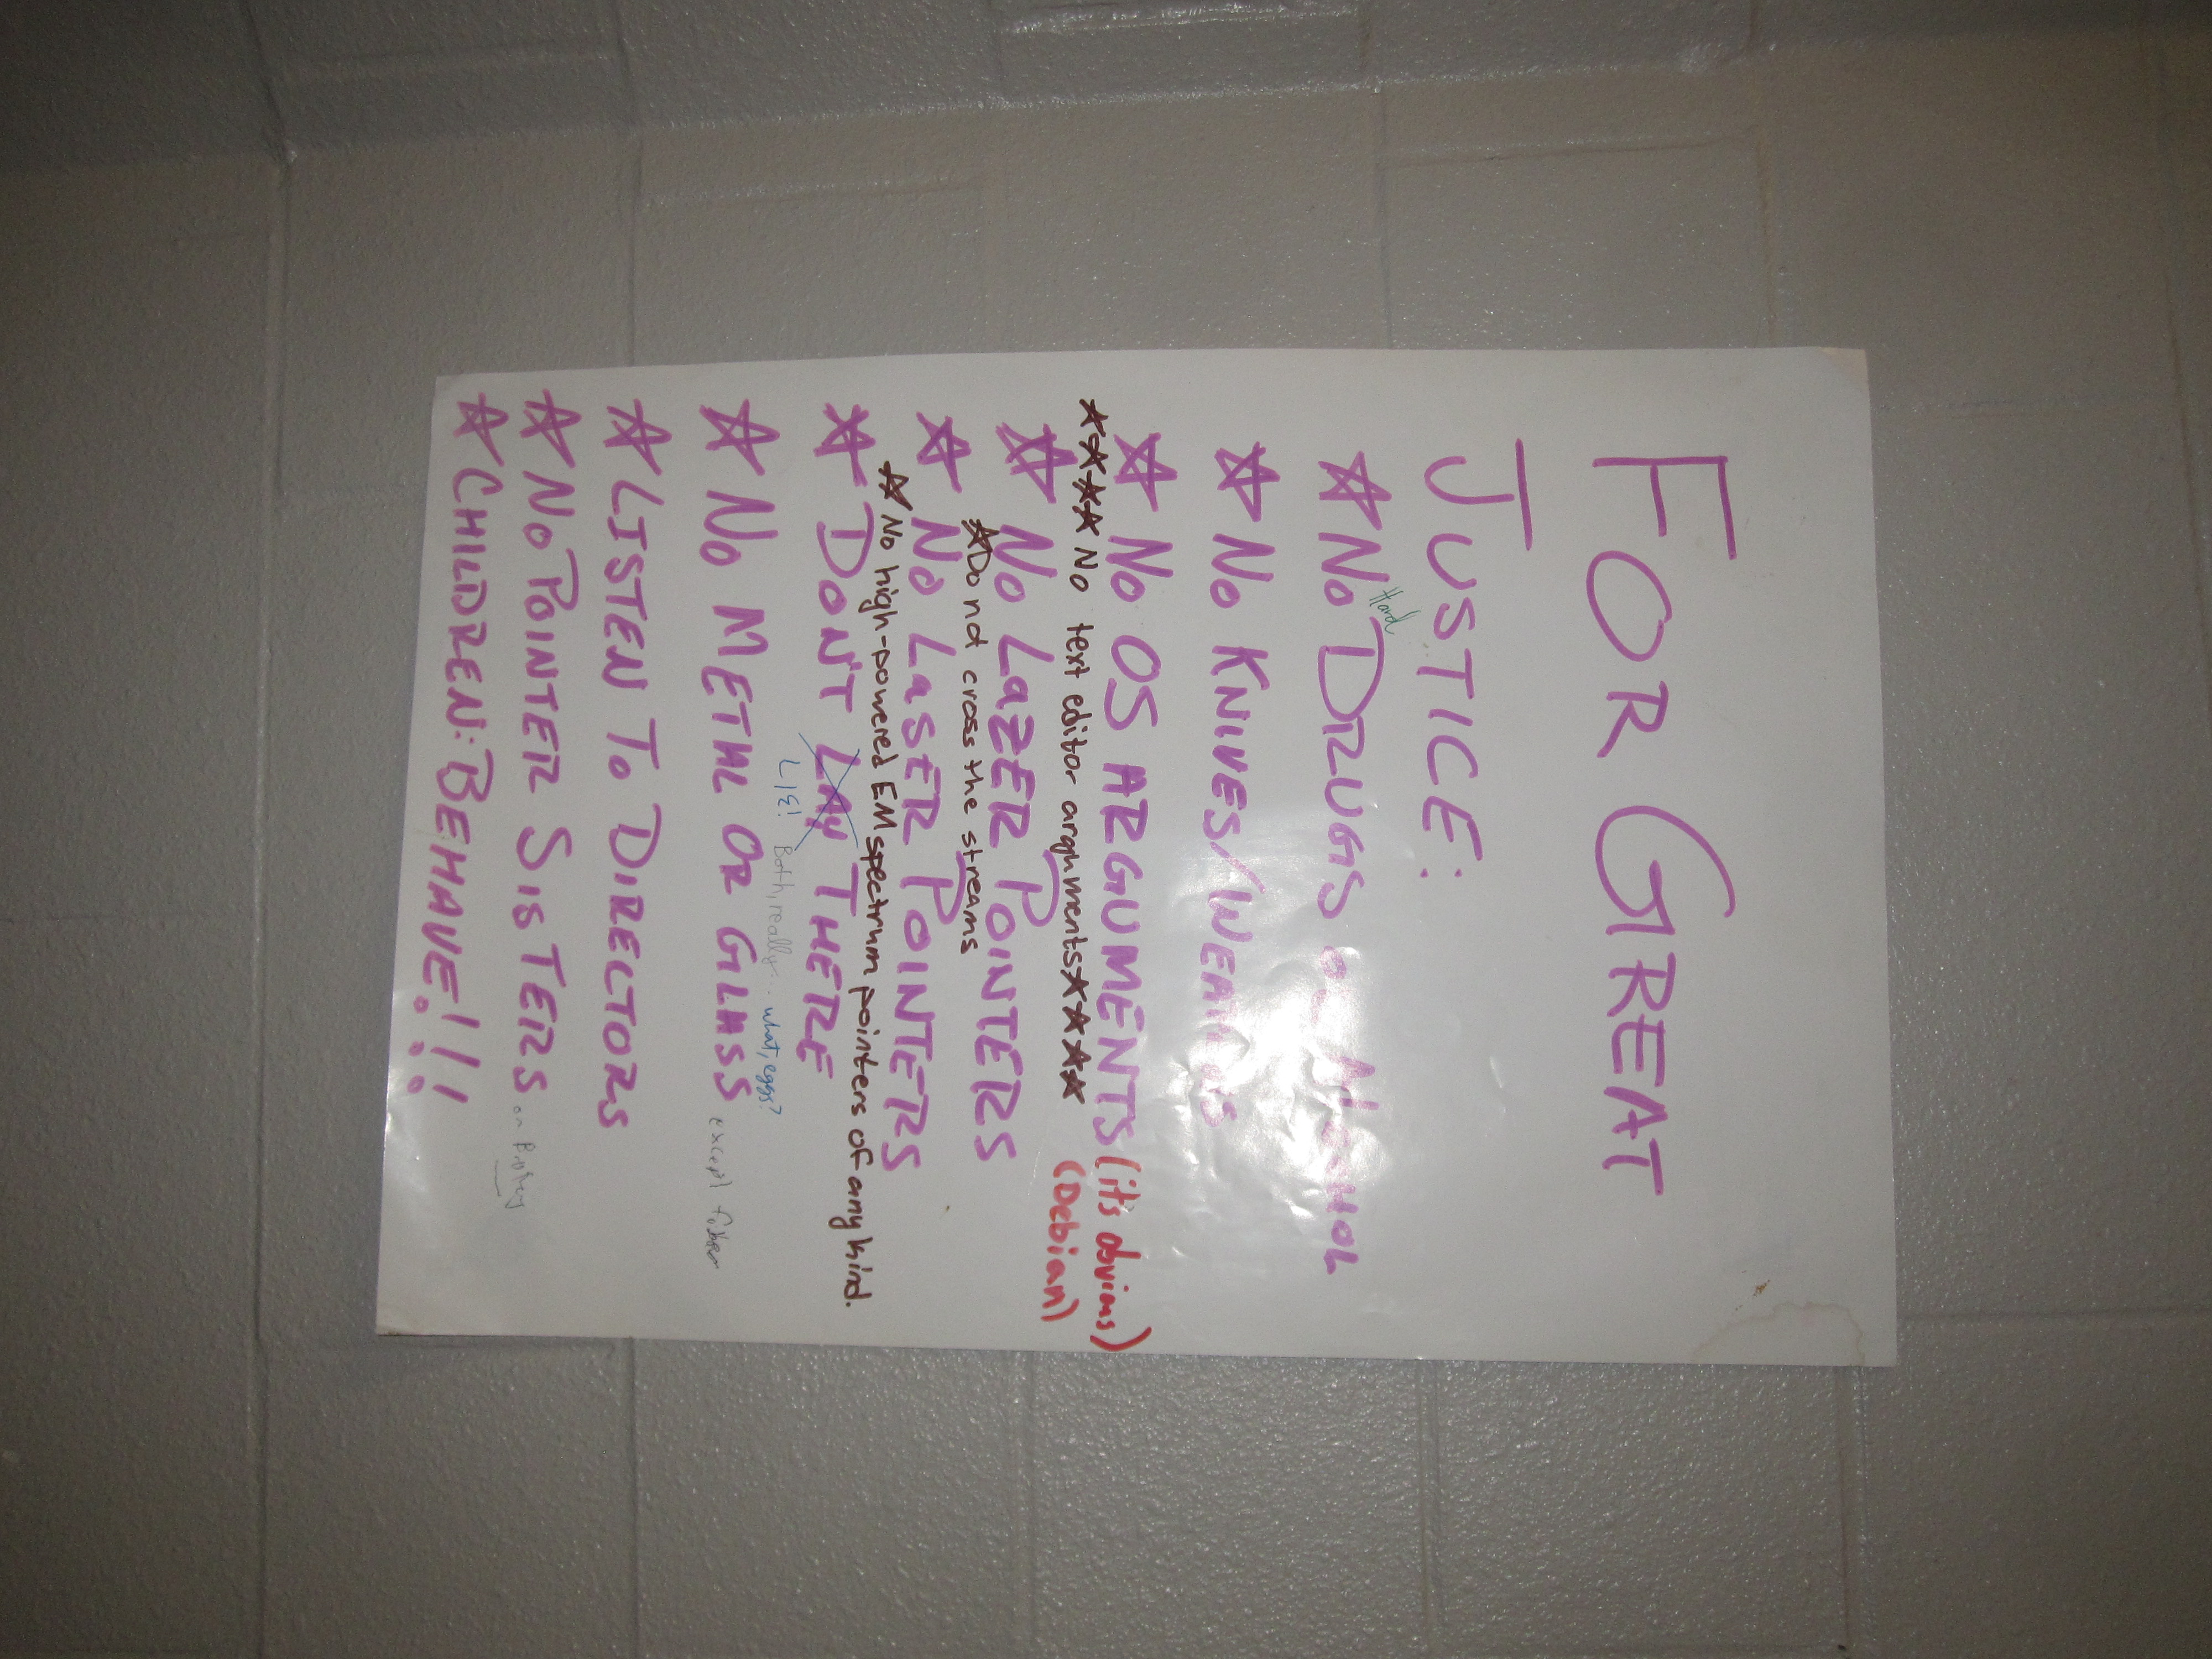 FOR GREAT
JUSTICE:
☆ No Hard DRUGS or Alcohol
☆ No KNIVES/WEAPONS
☆ No OS ARGUMENTS (it's obvious)
☆☆☆☆ No text editor arguments☆☆☆☆ (Debian)
☆ No LaZER POINTERS
☆Do not cross the streams
☆ No LaSER POINTERS
☆ No high-powered EM spectrum pointers of any kind.
☆ DONT LAY THERE
LIE! Both, really... what, eggs?
☆ No METAL OR GLASS except fiber
☆ LISTEN To DIRECTORS
☆ No POINTER SISTERS
☆ CHILDREN: BEHAVE!!!